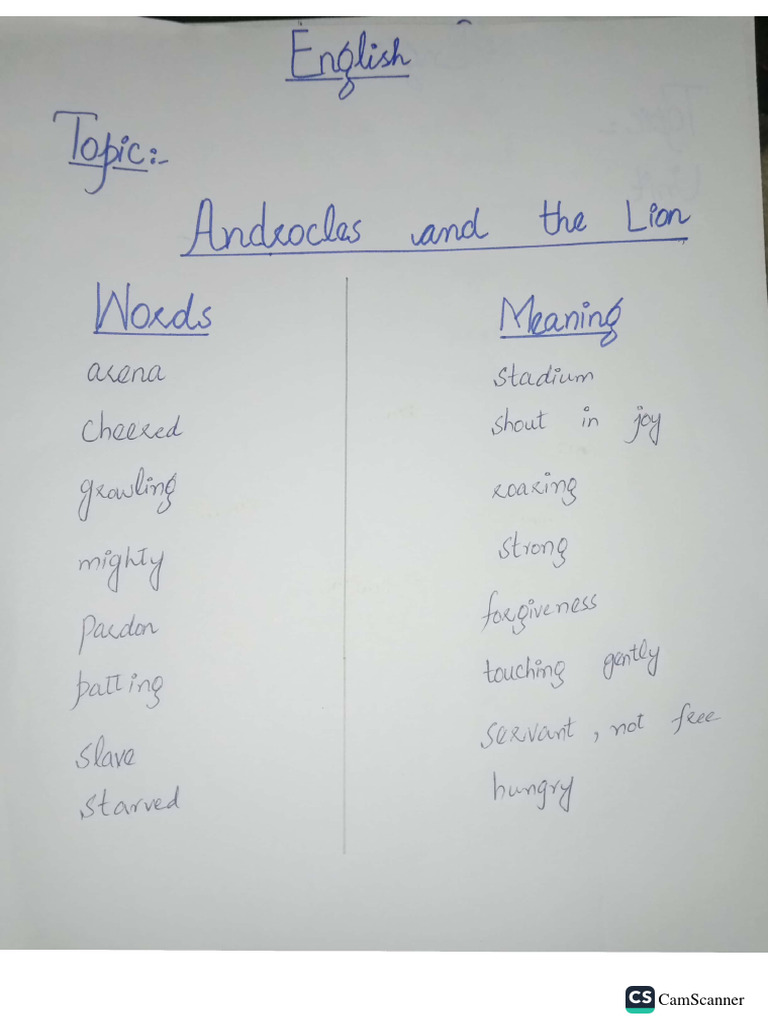 English
Topic:-
Androcles and the Lion
Words Meaning
arena stadium
cheered shout in joy
growling roaring
mighty strong
pardon forgiveness
patting touching gently
slave servant, not free
starved hungry
CS CamScanner